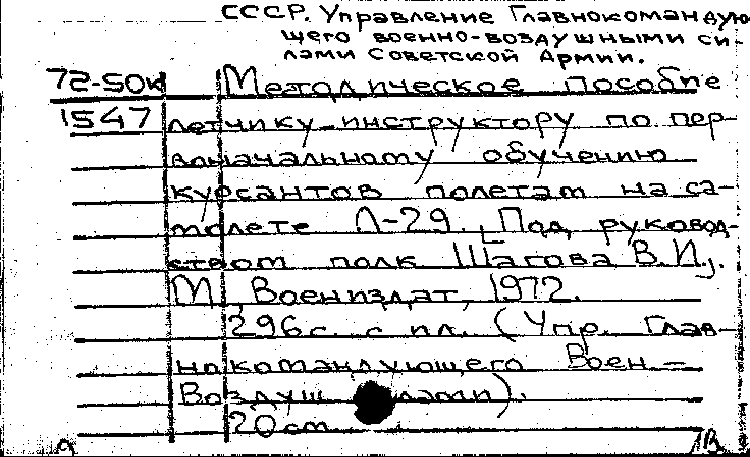 СССР. Управление Главнокомандую
щего военно-воздушными си-
лами Советской Армии.
72-50к Методическое пособие
1547 летчику-инструктору по пер-
воначальному обучению
курсантов полетам на са-
молете Л-29. [Под руковод-
ством полк Шагова В.И.].
М., Воениздат, 1972.
296с. с ил. (Упр. Глав-
нокомандующего Воен.-
Воздуш лами).
20см